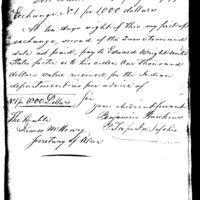 Exchange No. 1 for 1000 dollars
At ten days sight of this my first of
exchange, second of the same tenor and
date not paid, pay to Edward Wright United
States factor or his order One thousand
dollars value received for the Indian
department as per advice of
No 1 for 1000 Dollars for
your obedient servant
The Honble Benjamin Hawkins
James McHenry
Secretary of War